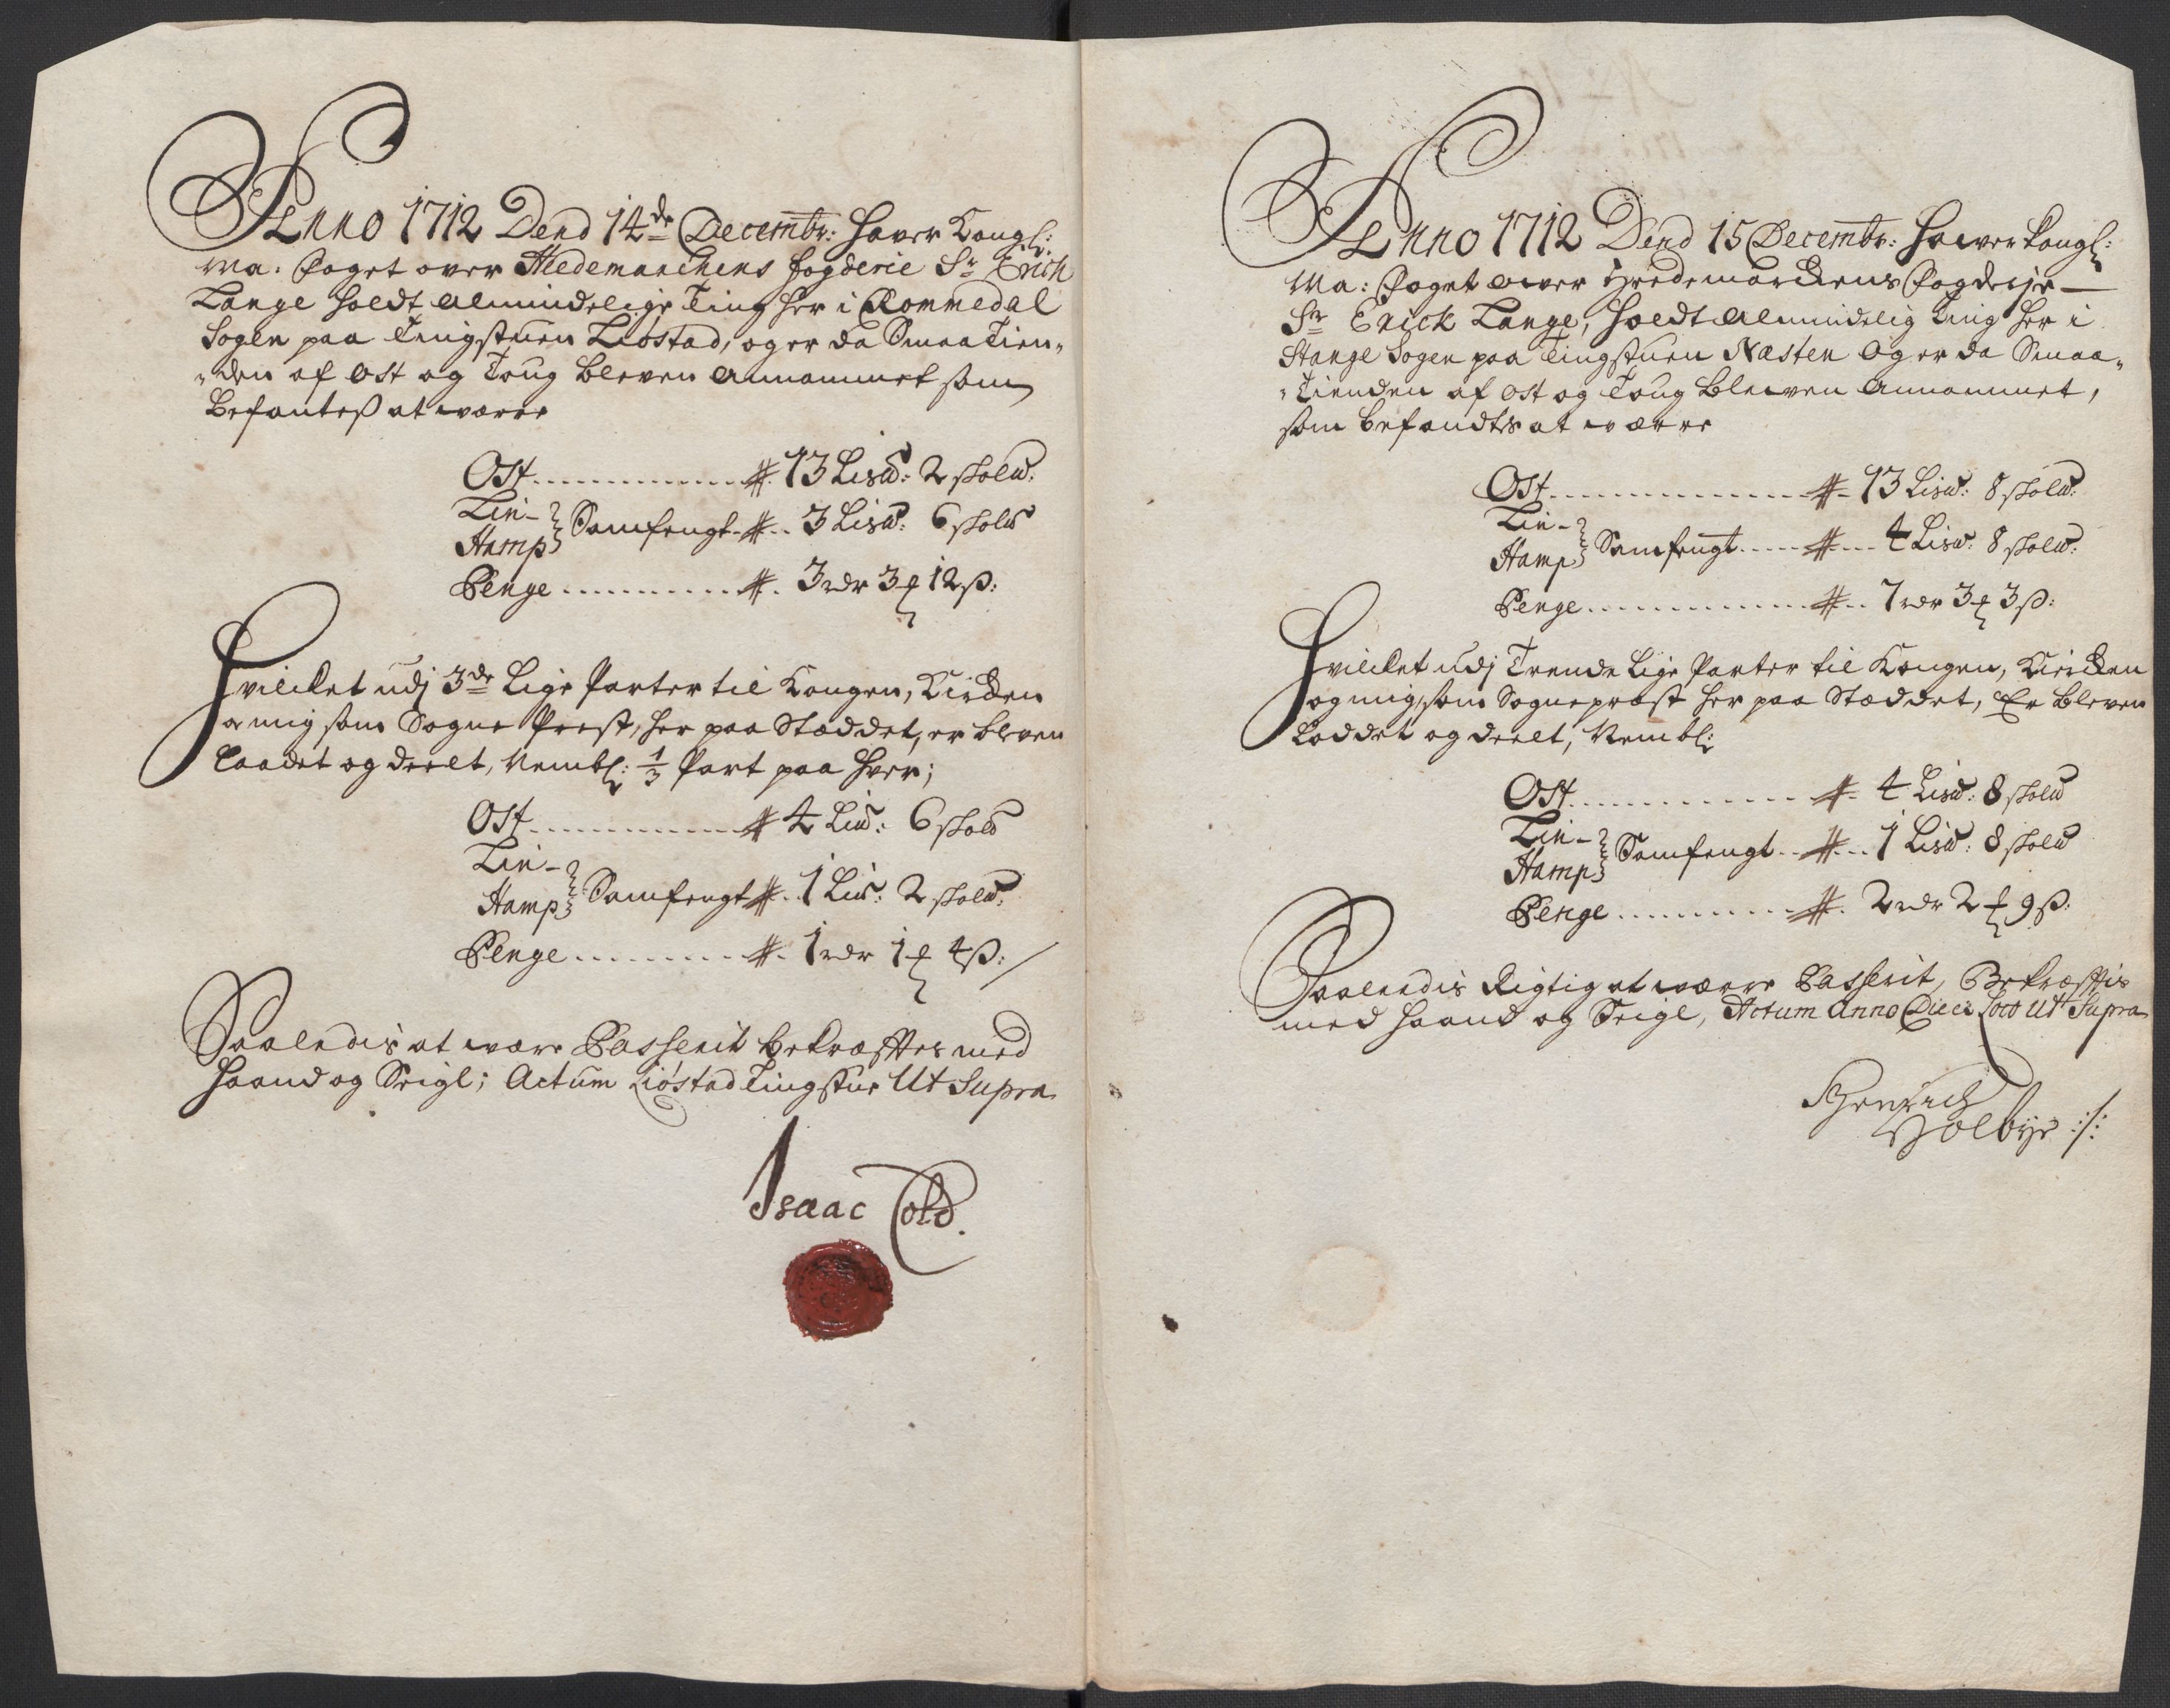 Anno 1712 Dend 14de Decembr: Haver Kongl:
Ma: Foget over Hedemarchens fogderie Sr Erich
Lange holdt almindelige Ting her i Rommedal
Sogen paa Tingstuen Liøstad, og er da Smaa Tien„
„den af Ost og Toug bleven annammet som
befantes at være
Ost ............... # 13 Lis℔: 2 skol℔:
Lin-
Hamp } Samfengt - # .. 3 Lis℔: 6 skol℔
Penge .......... # . 3 rdr 3 ₰ 12 ß:
Hvilcket udj 3de Lige Parter til Kongen, Kircken
og mig som Sogne Prest, her paa Stæddet, er bleven
laadet og deelt, Nembl: 1/3 Part paa hver;
Ost ............... # 4 Li℔: 6 skol℔
Lin-
Hamp } Samfengt # .. 1 Li℔: 2 skol℔:
Penge .......... # . 1 rdr 1 ₰ 4 ß: /
Saaledis at være Passerit bekræfftes med
Haand og Seigl; Actum Liøstad Tingstue Ut Supra
Isaac Cold.
Anno 1712 Dend 15 Decembr: Hawer Kongl:
Ma: Foget ower Hedemarckens Fogderje —
Sr Erick Lange, holdt Almindelig Ting her i
Stange Sogen paa Tingstuen Næsten og er da Smaa„
„Tienden af Ost og Toug blewen Annammet,
som befandtes at wære
Ost ............... # - 13 Lis℔: 8 skol℔:
Lin-
Hamp } Samfengt ..... # .... 4 Lis℔: 8 skol℔:
Penge ............... # .. 7 rdr 3 ₰ 3 ß:
Hvilcket udj Trende Lige Parter til Kongen, Kircken
og mig, som Sognepræst her paa Stæddet, Er bleven
Loddet og deelt, Nembl:
Ost ............... # - 4 Lis℔: 8 skol℔
Lin-
Hamp } Samfengt .. # ... 1 Lis℔: 8 skol℔
Penge .......... # . 2 rdr 2 ₰ 9 ß:
Saaledis Rigtig at wære Passerit, Bekræfftis
med Haand og Seigl, Actum Anno Die et Loco Ut Supra
Henrich
Holbye :/: